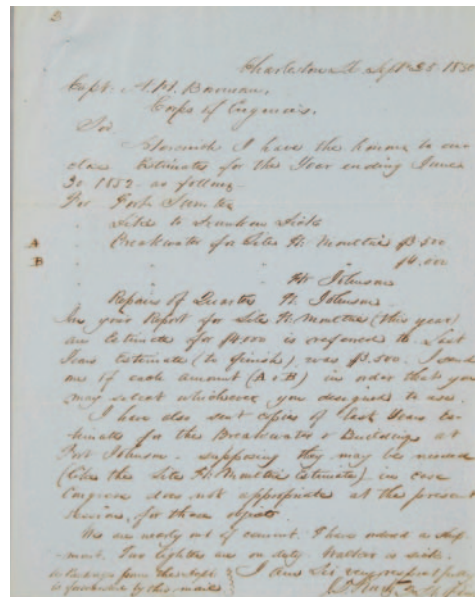 Charleston Sept 28 1850
Capt. A. H. Bowman,
Corps of Engineers.
Sir
Herewith I have the honour to en-
close Estimates for the Year ending June
30 1852 as follows
For Fort Sumter
Site to
A Breakwater for Site Ft. Moultrie $3.500
B " " " " $4.000
" " Ft Johnson
Repairs of Quarters Ft. Johnson
In your Report for Site Ft. Moultrie (this year)
an Estimate for $4.000 is referred to. Last
Years Estimate (to finish) was $3.500. I send
one of each amount (A & B) in order that you
may select whichever you designed to use.
I have also sent copies of last Years Es-
timates for the Breakwater & Buildings at
Fort Johnson - supposing they may be needed
(like the Site Ft. Moultrie Estimate) in case
Congress does not appropriate at the present
session, for those objects
We are nearly out of cement. I have ordered a ship-
ment. Two lighters are on duty. is sick.
A Package from the Dept
is forwarded by this mail
I am Sir very respectfully